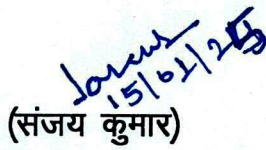 15/01/25
(संजय कुमार)